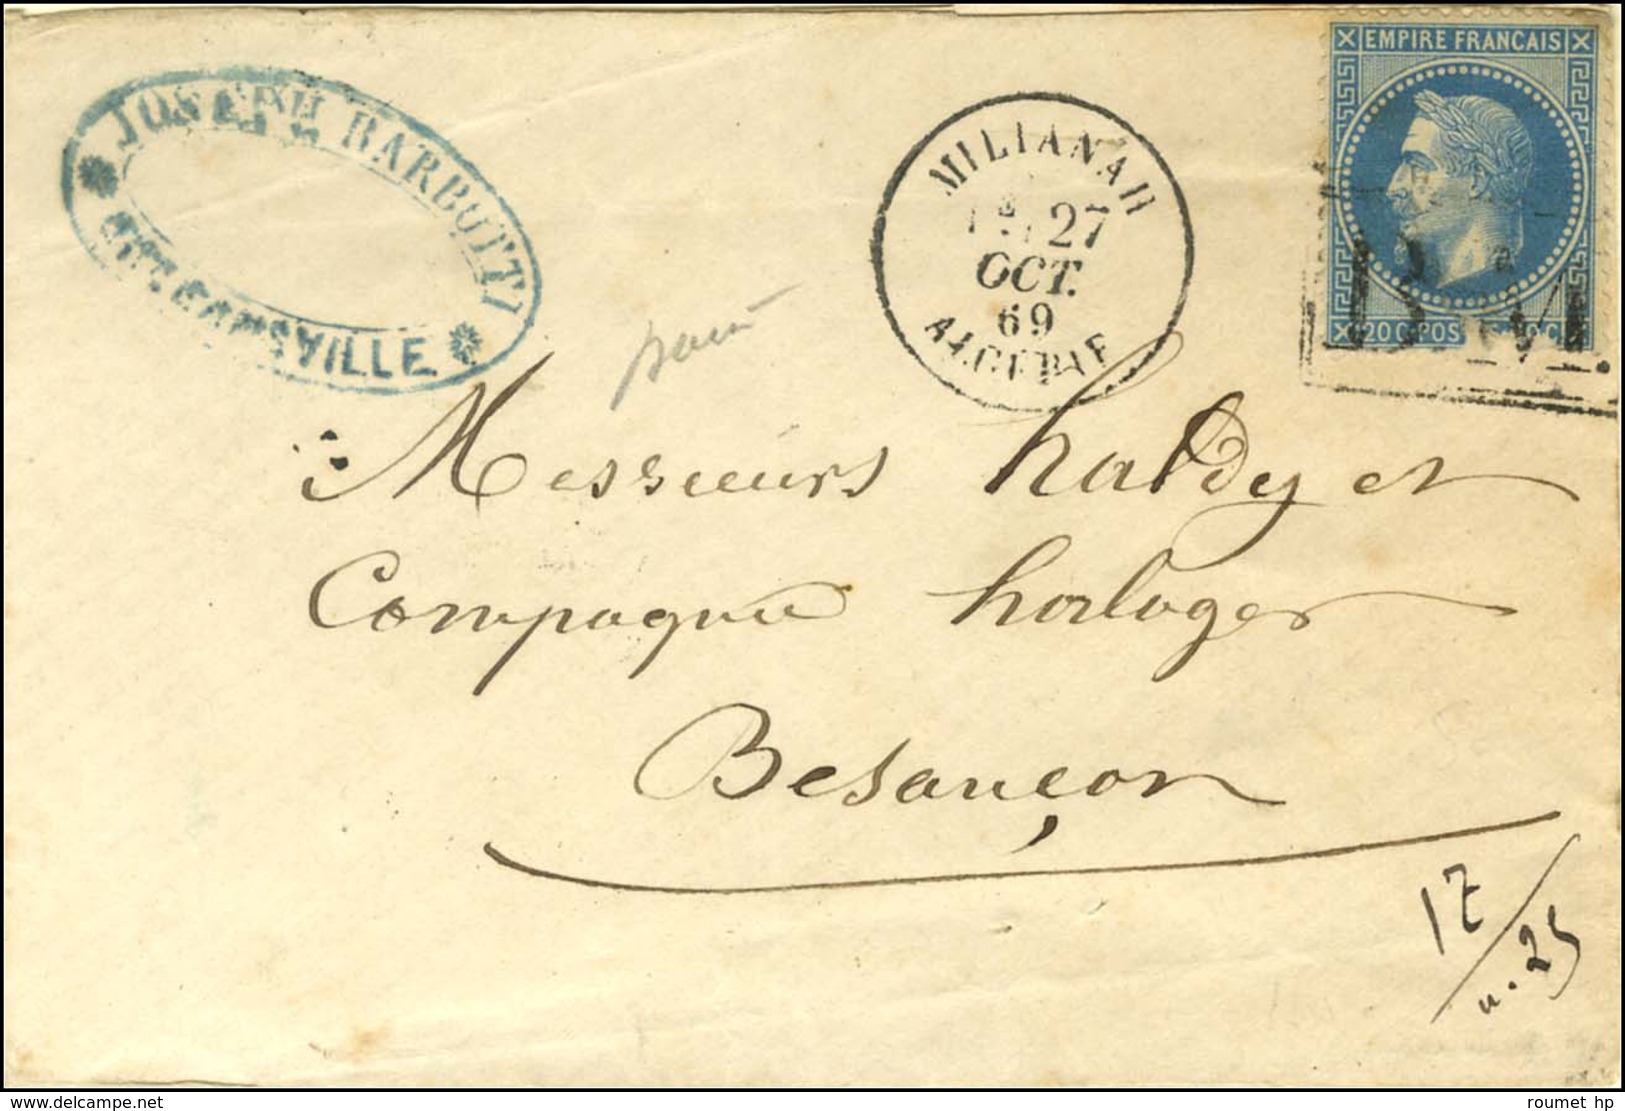 JOSEPH BARBOTTI
VILLE
MILIANAH
27
OCT.
69
ALGERIE
EMPIRE FRANCAIS
20 C. POS
B M.
Messieurs haldy et
Compagnie horloger
Besançon
17
n. 25
delcampe.net
roumet hp